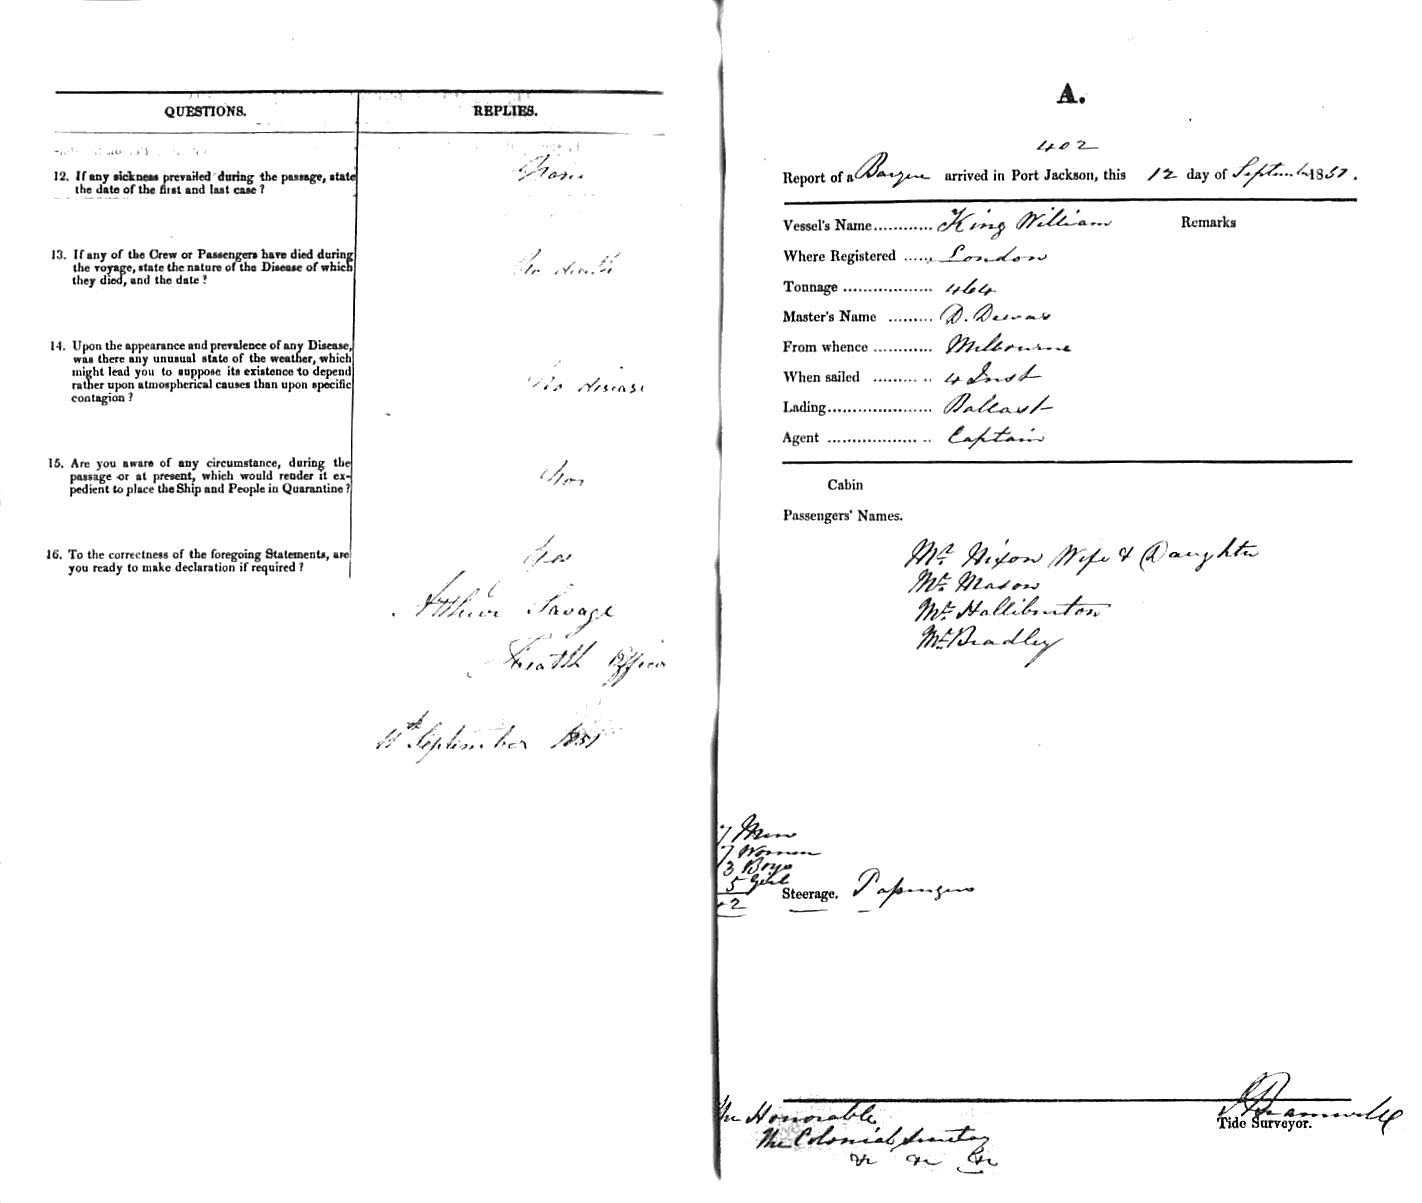 QUESTIONS. REPLIES.
12. If any sickness prevailed during the passage, state
the date of the first and last case ?
None
13. If any of the Crew or Passengers have died during
the voyage, state the nature of the Disease of which
they died, and the date ?
No death
14. Upon the appearance and prevalence of any Disease,
was there any unusual state of the weather, which
might lead you to suppose its existence to depend
rather upon atmospherical causes than upon specific
contagion ?
No disease
15. Are you aware of any circumstance, during the
passage or at present, which would render it ex-
pedient to place the Ship and People in Quarantine ?
16. To the correctness of the foregoing Statements, are
you ready to make declaration if required ?
Yes
Arthur Savage
Health Officer
September 1851
A.
402
Report of a Barque arrived in Port Jackson, this 12 day of September 1851.
Vessel's Name............ King William Remarks
Where Registered ...... London
Tonnage .................. 464
Master's Name ......... D.
From whence ............ Melbourne
When sailed ......... .. 4 Inst
Lading..................... Ballast
Agent .................. .. Captain
Cabin
Passengers' Names.
Mr. Nixon Wife & Daughter
Mr. Mason
Mr. Halliburton
Mr. Bradley
7 Men
7 Women
3 Boys
5 Girl
2
Steerage. Passengers
The Honorable
The Colonial Secretary
&c &c &c
Tide Surveyor.